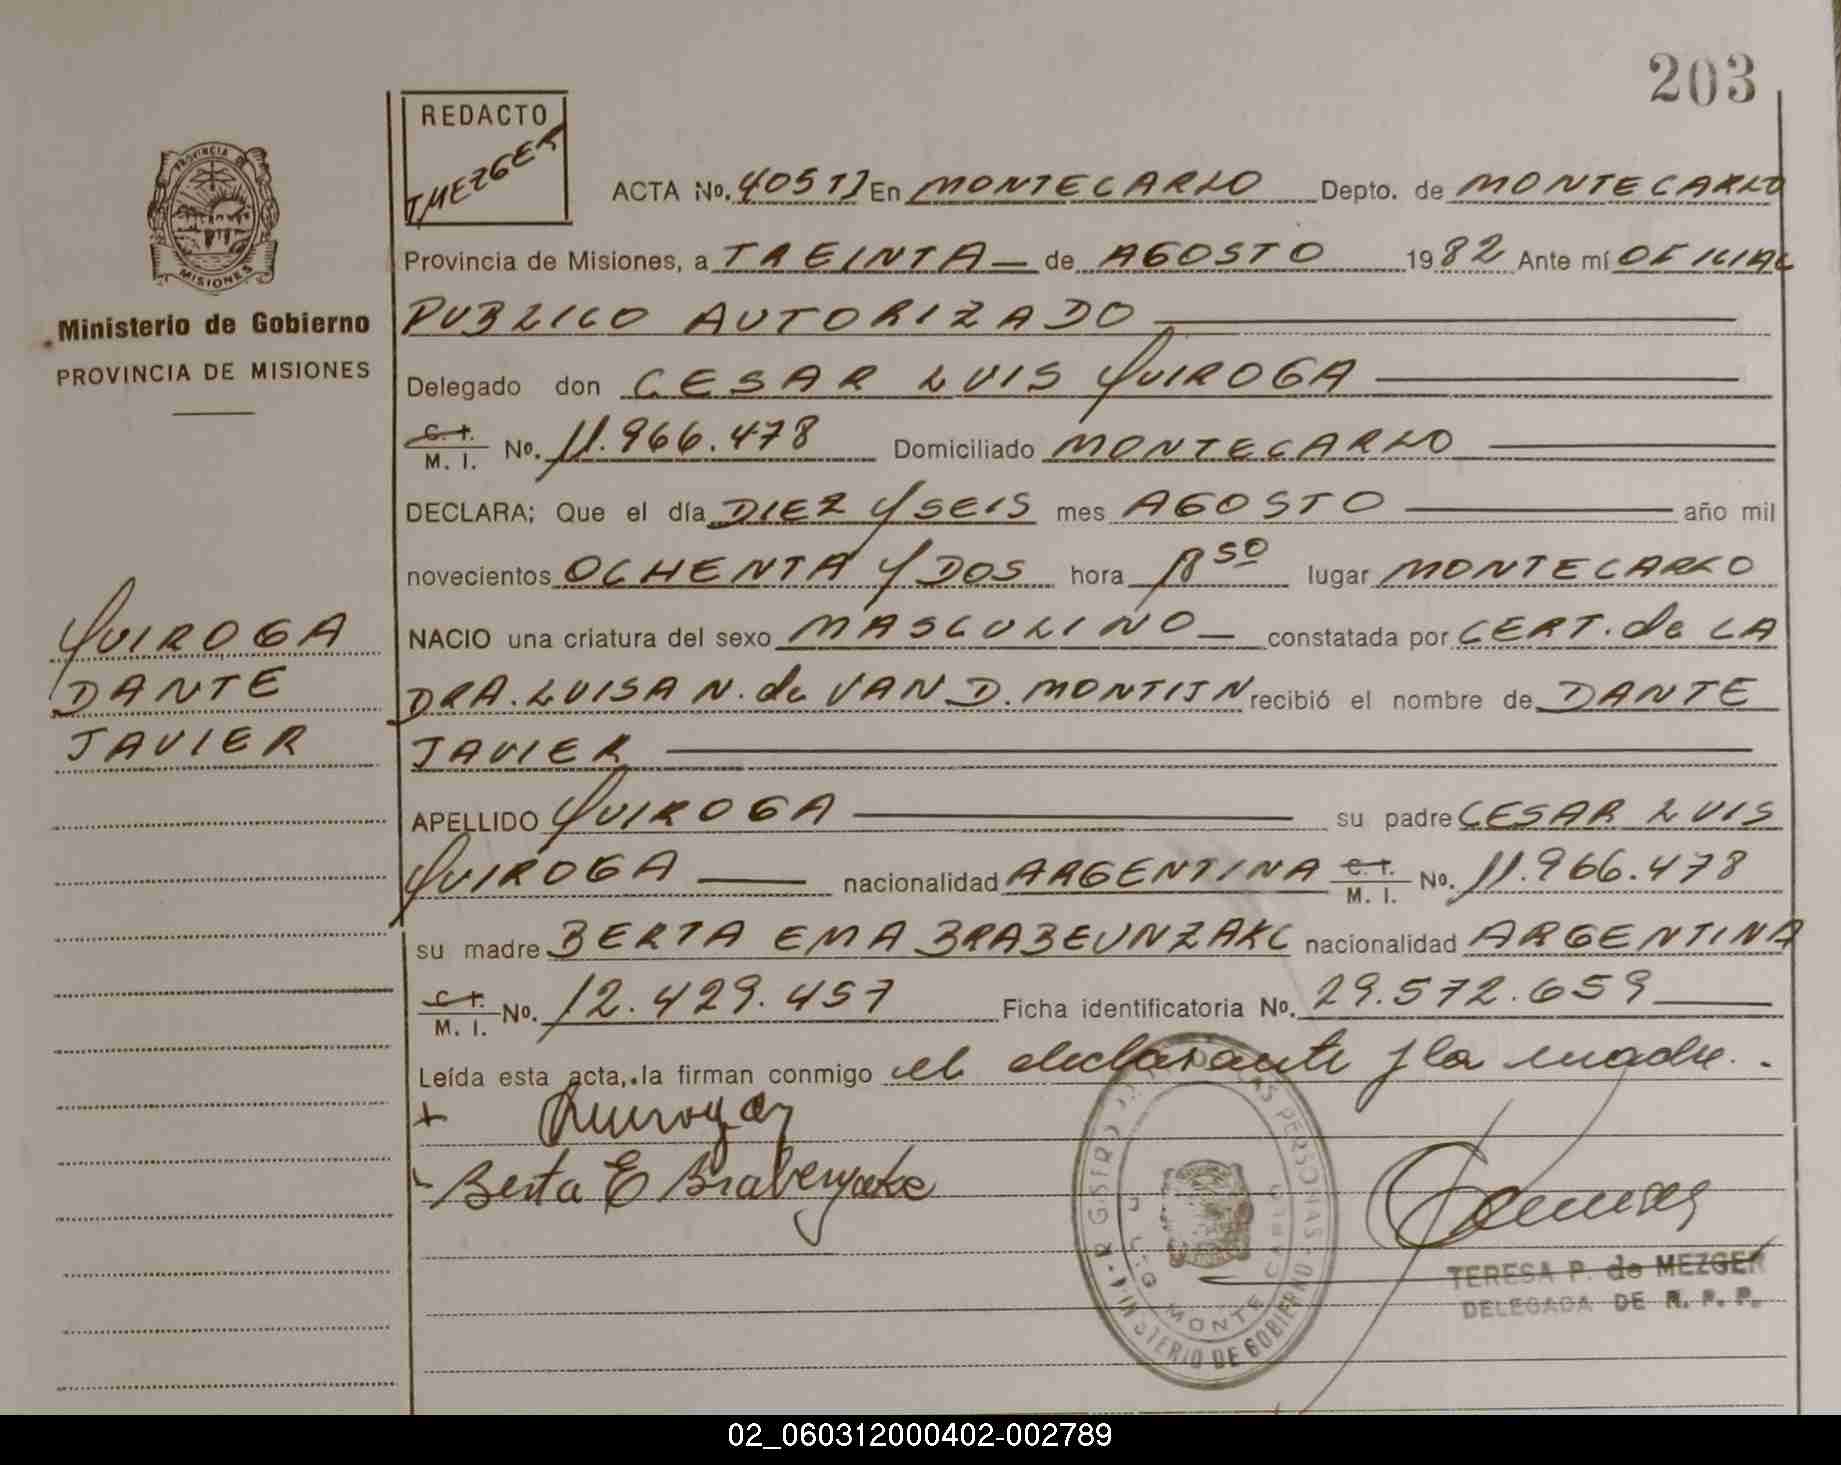 203
REDACTO
T MEZGER
PROVINCIA DE
MISIONES
Ministerio de Gobierno
PROVINCIA DE MISIONES
ACTA No. En MONTECARLO Depto. de MONTECARLO
Provincia de Misiones, a TREINTA — de AGOSTO 1982 Ante mí OFICIAL
PUBLICO AUTORIZADO
Delegado don CESAR LUIS QUIROGA
C. I. M. I. No. 11.966.478 Domiciliado MONTECARLO
DECLARA; Que el día DIEZ Y SEIS mes AGOSTO año mil
novecientos OCHENTA Y DOS hora 18 50 lugar MONTECARLO
NACIO una criatura del sexo MASCULINO — constatada por CERT. de LA
DRA. LUISA N. de VAN D. MONTIJN recibió el nombre de DANTE
JAVIER
APELLIDO QUIROGA su padre CESAR LUIS
QUIROGA nacionalidad ARGENTINA C. I. M. I. No. 11.966.478
su madre BERTA EMA nacionalidad ARGENTINA
C. I. M. I. No. 12.429.457 Ficha identificatoria No. 29.572.659
Leída esta acta, la firman conmigo el declarante y la madre.
QUIROGA
DANTE
JAVIER
Berta E
REGISTRO DE LAS PERSONAS
MINISTERIO DE GOBIERNO
MONTE CARLO
TERESA P. de MEZGER
DELEGADA DE R. P. P.
02_060312000402-002789